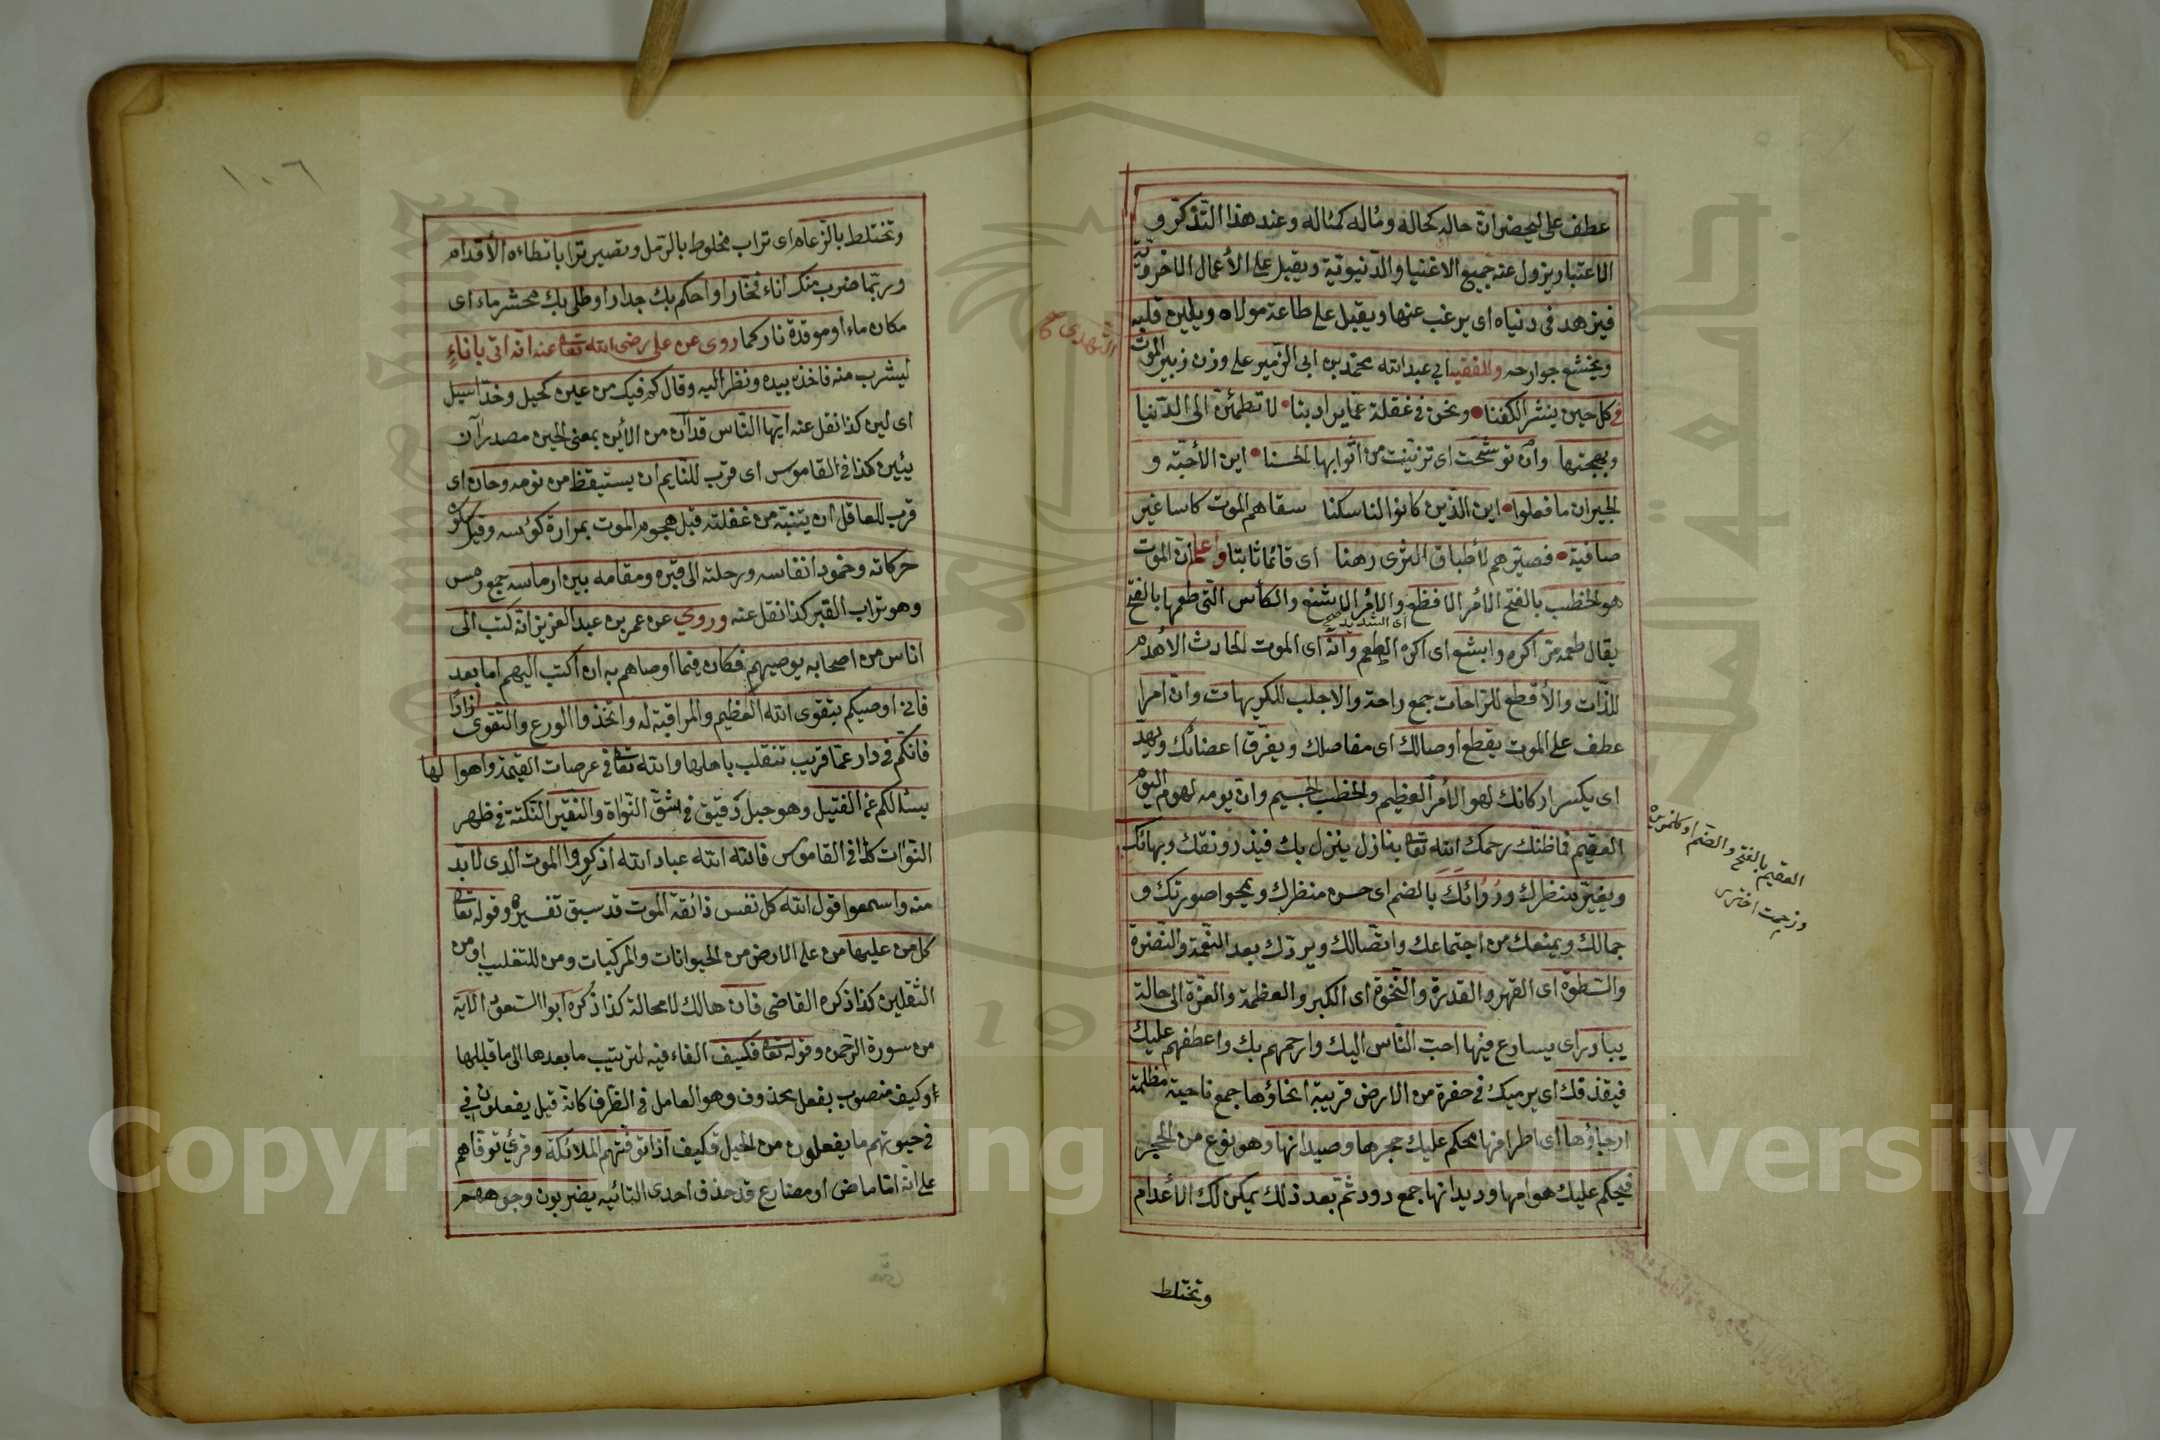 عطف على ليحضر ان حاله كحاله ومأله كمأله وعند هذا التذكر و
الاعتبار يزول عنه جميع الاغنيار والدنيوية ويقبل على الأعمال الاخروية
فيزهد فى دنياه اى يرغب عنها ويقبل على طاعة مولاه ويلين قلبه
ويخشع جوارحه وللفقيه ابي عبد الله محمد بن ابى الزمير على وزن زبير الموت
في كل حين ينشر الكفنا ونحن فى غفلة عما يراد بنا لا تطمئن الى الدنيا
وبهجتها وان توشحت اى تزينت من اثوابها الحسنا اين الأحبة و
الجيران ما فعلوا اين الذين كانوا لنا سكنا سقاهم الموت كاسا غير
صافية فصيرهم لأطباق الثرى رهنا اى قائما ثابتا واعلم ان الموت
هو الخطب بالفتح الأمر الافظع والأمر الاشنع والكأس التى طعمها بالفتح
اى الشديد
يقال طعمه مر اكره وابشع اى اكره الطعم وانه اى الموت الحادث الأهدم
للذات والأقطع للراحات جمع راحة والاجلب للكريهات وان امرا
عطف على الموت يقطع اوصالك اى مفاصلك ويفرق اعضائك ويهد
اى يكسر اركانك لهو الأمر العظيم والخطب الجسيم وان يومه لهو اليوم
العقيم فاظنك رحمك الله تعالى بنازل ينزل بك فيذر رونقك وبهائك
ويغير منظرك ورُوائك بالضم اى حسن منظرك ويمحوا صورتك و
جمالك ويمنعك من اجتماعك واتصالك ويردك بعد النعمة والنضرة
والسطوة اى القهر والقدرة والنخوة اى الكبر والعظمة والعزة الى حالة
يبادر اى يسارع فيها احب الناس اليك وارحمهم بك واعطفهم عليك
فيقذفك اى يرميك فى حفرة من الارض قريبة انحاؤها جمع ناحية مظلمة
ارجاؤها اى اطرافها محكم عليك حجرها وصيدانها وهو نوع من الحجر
فيحكم عليك هوامها وديدانها جمع دود ثم بعد ذلك يمكن لك الأعدام
وتختلط
العقيم بالفتح والضم
١٠٦
وتختلط بالرغام اى تراب مخلوط بالرمل وتصير ترابا تطاءه الأقدام
وربما ضرب منك اناء فخار او احكم بك جدار او طلى بك محشر ماء اى
مكان ماء او موقدة نار كما روى عن على رضى الله تعالى عنه انه اتى باناءٍ
ليشرب منه فاخذه بيده ونظر اليه وقال كم فيك من عين كحيل وخد اسيل
اى لين كذا نقل عنه ايها الناس قد آن من الأين بمعنى الحين مصدر آن
يئين كذا فى القاموس اى قرب للنايم ان يستيقظ من نومه وحان اى
قرب للعاقل ان يتنبه من غفلته قبل هجوم الموت بمرارة كؤسه وقبل سكون
حركاته وخمود انفاسه ورحلته الى قبره ومقامه بين ارماسه جمع رمس
وهو تراب القبر كذا نقل عنه وروي عن عمر بن عبد العزيز انه كتب الى
اناس من اصحابه يوصيهم فكان فيما اوصاهم به ان اكتب اليهم اما بعد
فانى اوصيكم بتقوى الله العظيم والمراقبة له واتخذوا الورع والتقوى زادا
فانكم فى دار عما قريب تنقلب باهلها والله تعالى فى عرصات القيمة واهوالها
يسئالكم عن الفتيل وهو حبل دقيق فى شق النواة والنقير النكتة فى ظهر
النوات كذا فى القاموس فالله الله عباد الله اذكروا الموت الذى لابد
منه واسمعوا قول الله كل نفس ذائقة الموت قد سبق تفسيره وقوله تعالى
كل من عليها من على الارض من الحيوانات والمركبات ومن للتغليب او من
الثقلين كذا ذكره القاضى فان هالك لا محالة كذا ذكره ابوا السعود الآية
من سورة الرحمن وقوله تعالى فكيف الفاء فيه لترتيب ما بعدها الى ما قبلها
وكيف منصوب بفعل محذوف وهو العامل فى الظرف كانه قيل يفعلون فى
فى حيوتهم ما يفعلون من الحيل فكيف اذا توفتهم الملائكة وقرئ توفاهم
على انه اما ماض او مضارع قد حذف احدى التائيه يضربون وجوههم
Copyright © King Saud University